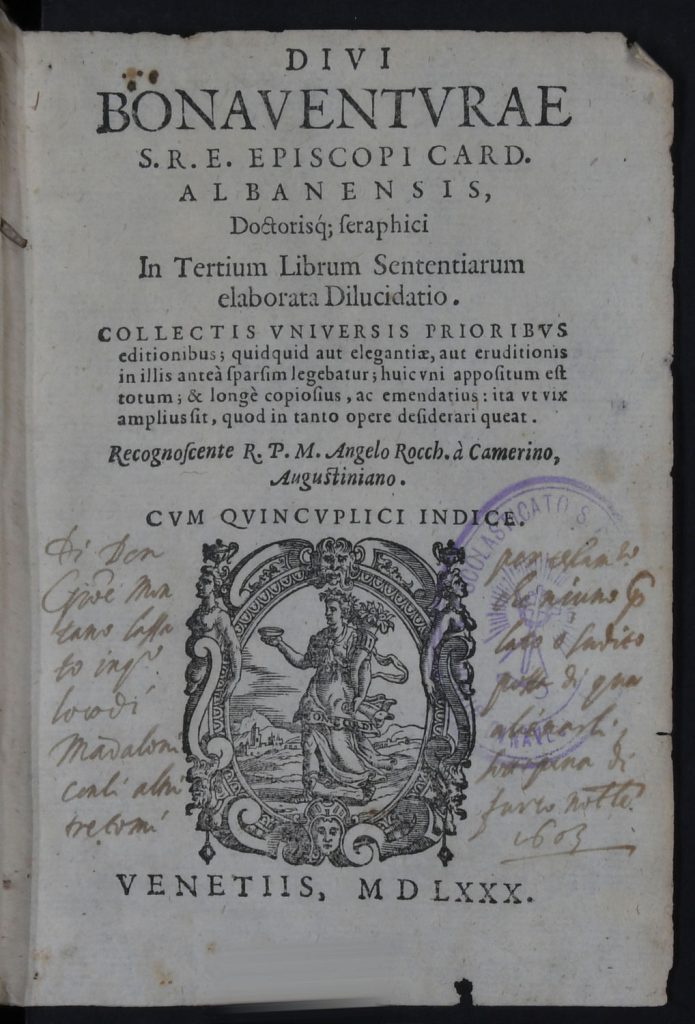 DIVI
BONAVENTVRAE
S. R. E. EPISCOPI CARD.
ALBANENSIS,
Doctorisq́; ſeraphici
In Tertium Librum Sententiarum
elaborata Dilucidatio.
COLLECTIS VNIVERSIS PRIORIBVS
editionibus; quidquid aut elegantiæ, aut eruditionis
in illis anteà ſparſim legebatur; huic vni appoſitum eſt
totum; & longè copioſius, ac emendatius: ita vt vix
amplius ſit, quod in tanto opere deſiderari queat.
Recognoſcente R. P. M. Angelo Rocch. à Camerino,
Auguſtiniano.
CVM QVINCVPLICI INDICE.
Di Don
Mon
tano laſſa
to in
Madaloni
con li altri
tre tomi
che niuno
lato o ſudito
poſſa di qua
alienarli
pena di
furto
1603
SCOLASTICATO S.
CONCORDIA
VENETIIS, MDLXXX.